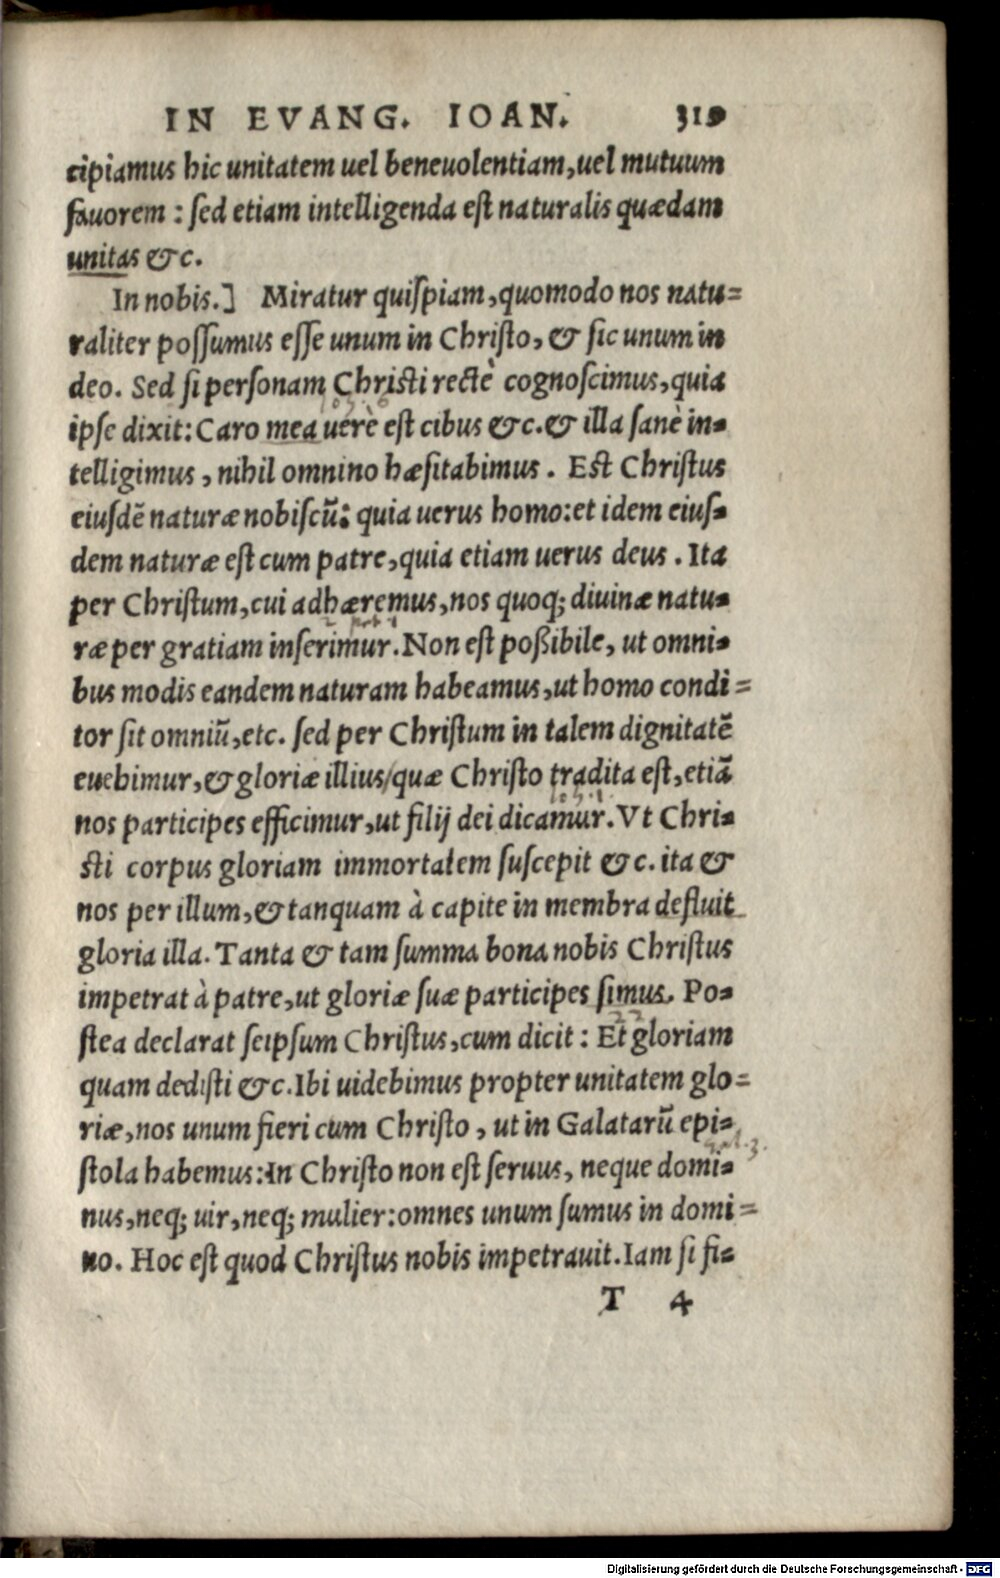 IN EVANG. IOAN. 319
cipiamus hic unitatem uel beneuolentiam,uel mutuum
fauorem : sed etiam intelligenda est naturalis quædam
unitas &c.
In nobis.] Miratur quispiam,quomodo nos natu=
raliter possumus esse unum in Christo, & sic unum in
deo. Sed si personam Christi rectè cognoscimus,quia
ipse dixit: Caro mea uerè est cibus &c.& illa sanè in=
telligimus , nihil omnino hæsitabimus . Est Christus
eiusdẽ naturæ nobiscũ: quia uerus homo:et idem eius=
dem naturæ est cum patre,quia etiam uerus deus . Ita
per Christum,cui adhæremus,nos quoq; diuinæ natu=
ræ per gratiam inserimur.Non est poßibile, ut omni=
bus modis eandem naturam habeamus,ut homo condi=
tor sit omniũ,etc. sed per Christum in talem dignitatẽ
euehimur,& gloriæ illius/quæ Christo tradita est,etiã
nos participes efficimur,ut filij dei dicamur.Vt Chri=
sti corpus gloriam immortalem suscepit &c. ita &
nos per illum,& tanquam à capite in membra defluit
gloria illa. Tanta & tam summa bona nobis Christus
impetrat à patre,ut gloriæ suæ participes simus. Po=
22
stea declarat seipsum Christus,cum dicit : Et gloriam
quam dedisti &c.Ibi uidebimus propter unitatem glo=
riæ,nos unum fieri cum Christo , ut in Galatarũ epi=
Gal.3.
stola habemus:In Christo non est seruus, neque domi=
nus,neq; uir,neq; mulier:omnes unum sumus in domi=
no. Hoc est quod Christus nobis impetrauit.Iam si fi=
T 4
Digitalisierung gefördert durch die Deutsche Forschungsgemeinschaft - DFG